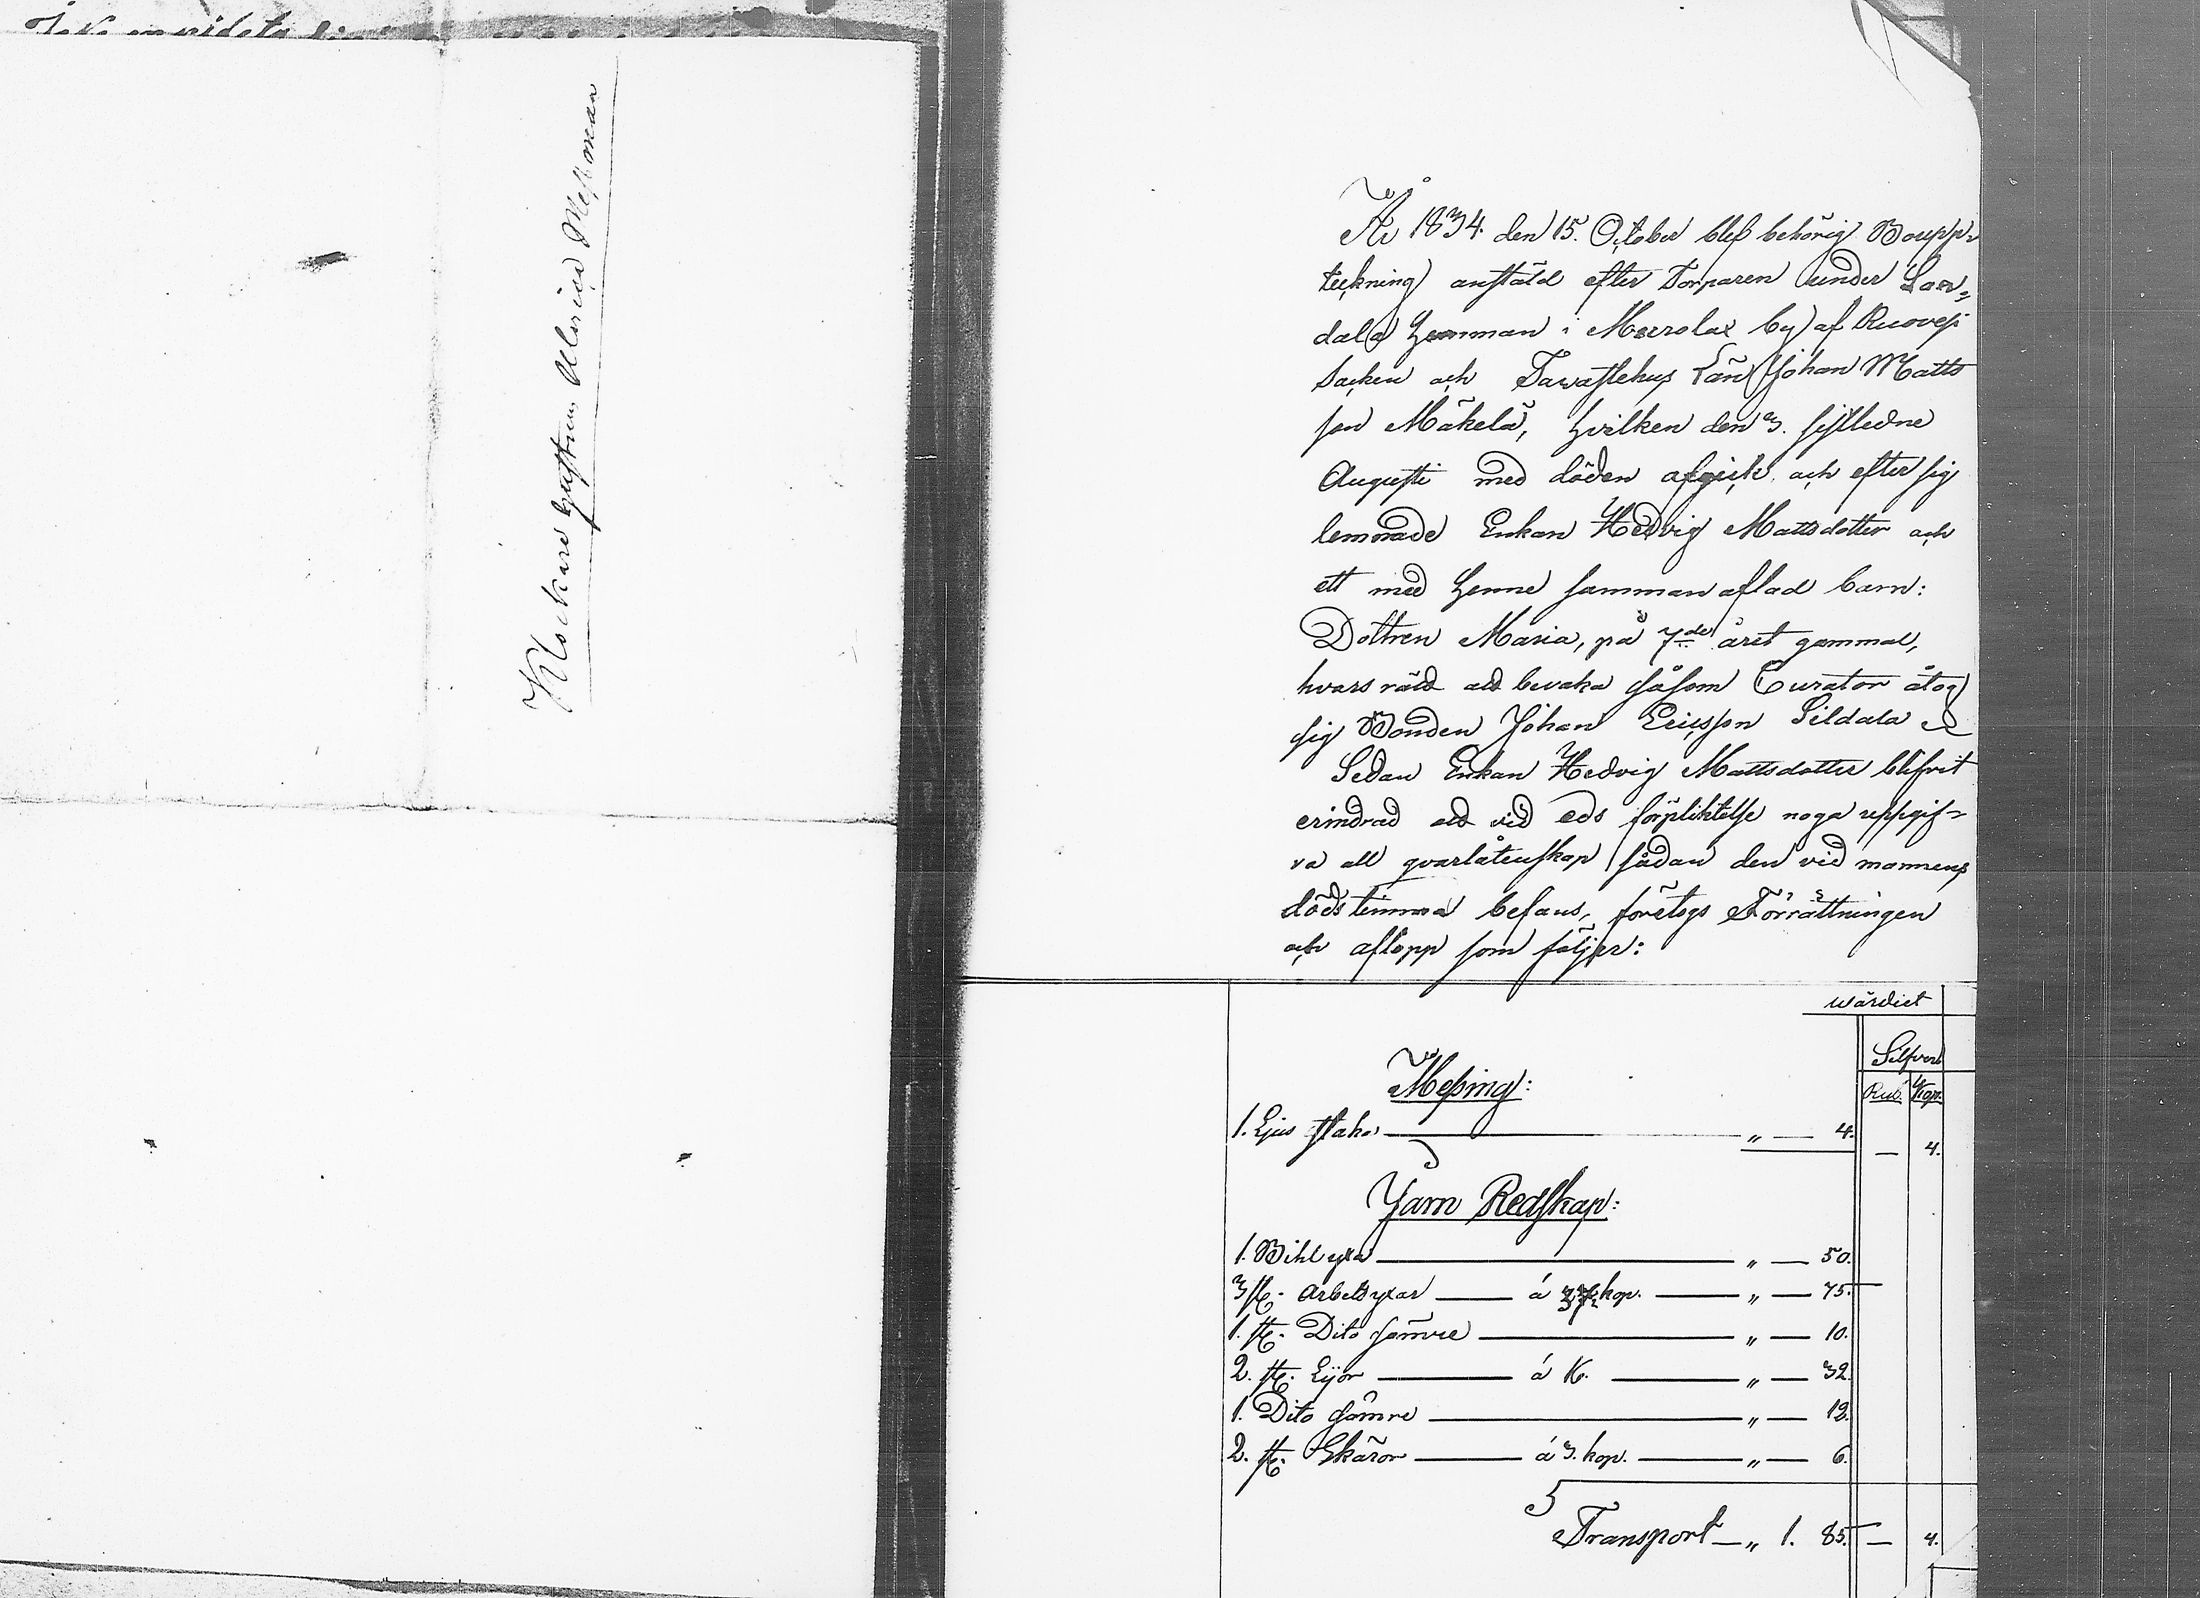 Klockare Enkan Maria Meßman
År 1834. den 15. October blef behörig Boupp-
teckning anstäld efter Torparen under
dala Hemman i Murolax by af Ruovesi
Socken och Tavastehus Län Johan Matts
son Mäkelä, hvilken den 3. sistledne
Augusti med döden afgick och efter sig
lemnade Enkan Hedvig Mattsdotter och
ett med henne samman aflad barn:
Dottren Maria, på 7de året gammal,
hvars rätt att bevaka såsom Curator åtog
sig Bonden Johan Ericsson Sildala
Sedan Enkan Hedvig Mattsdotter blifvit
erindrad att vid eds förpliktelse noga uppgif-
va all qvarlåtenskap sådan den vid mannens
dödstimma befans, företogs Förrättningen
och aflopp som följer:
Wärdiet
Silfver
Rub. Kop.
Meßing:
1. Ljus stake — " — 4. — 4.
Järn Redskap:
1. Bihl yxa — " — 50.
3 st. Arbetsyxar — á kop. — " — 75.
1. st. Dito sämre — " — 10.
2. st. Lijor — á 16. — " — 32.
1. Dito sämre — " — 12.
2. st. Skäror — á 3. kop. — " — 6.
Transport — " 1. 85. — 4.